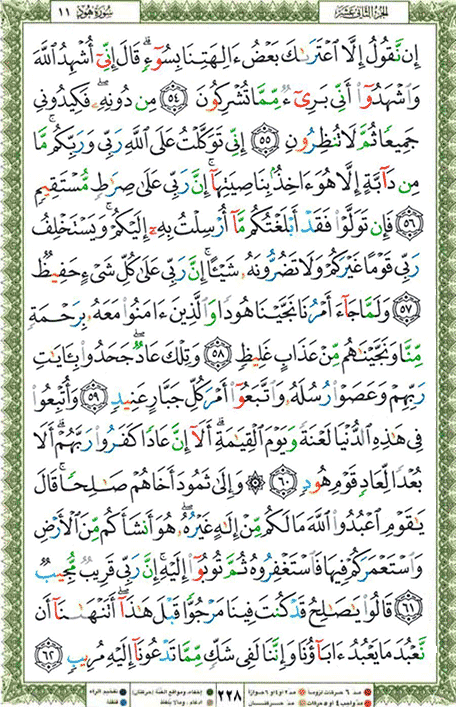 الجزء الثاني عشر
سورة هود ١١
إِن نَّقُولُ إِلَّا ٱعْتَرَىٰكَ بَعْضُ ءَالِهَتِنَا بِسُوٓءٍ ۗ قَالَ إِنِّىٓ أُشْهِدُ ٱللَّهَ
وَٱشْهَدُوٓا۟ أَنِّى بَرِىٓءٌ مِّمَّا تُشْرِكُونَ ٥٤ مِن دُونِهِۦ ۖ فَكِيدُونِى
جَمِيعًا ثُمَّ لَا تُنظِرُونِ ٥٥ إِنِّى تَوَكَّلْتُ عَلَى ٱللَّهِ رَبِّى وَرَبِّكُم ۚ مَّا
مِن دَآبَّةٍ إِلَّا هُوَ ءَاخِذٌۢ بِنَاصِيَتِهَآ ۚ إِنَّ رَبِّى عَلَىٰ صِرَٰطٍ مُّسْتَقِيمٍ
٥٦ فَإِن تَوَلَّوْا۟ فَقَدْ أَبْلَغْتُكُم مَّآ أُرْسِلْتُ بِهِۦٓ إِلَيْكُمْ ۚ وَيَسْتَخْلِفُ
رَبِّى قَوْمًا غَيْرَكُمْ وَلَا تَضُرُّونَهُۥ شَيْـًٔا ۚ إِنَّ رَبِّى عَلَىٰ كُلِّ شَىْءٍ حَفِيظٌ
٥٧ وَلَمَّا جَآءَ أَمْرُنَا نَجَّيْنَا هُودًا وَٱلَّذِينَ ءَامَنُوا۟ مَعَهُۥ بِرَحْمَةٍ
مِّنَّا وَنَجَّيْنَٰهُم مِّنْ عَذَابٍ غَلِيظٍ ٥٨ وَتِلْكَ عَادٌ ۖ جَحَدُوا۟ بِـَٔايَٰتِ
رَبِّهِمْ وَعَصَوْا۟ رُسُلَهُۥ وَٱتَّبَعُوٓا۟ أَمْرَ كُلِّ جَبَّارٍ عَنِيدٍ ٥٩ وَأُتْبِعُوا۟
فِى هَٰذِهِ ٱلدُّنْيَا لَعْنَةً وَيَوْمَ ٱلْقِيَٰمَةِ ۗ أَلَآ إِنَّ عَادًا كَفَرُوا۟ رَبَّهُمْ ۗ أَلَا
بُعْدًا لِّعَادٍ قَوْمِ هُودٍ ٦٠ ۞ وَإِلَىٰ ثَمُودَ أَخَاهُمْ صَٰلِحًا ۚ قَالَ
يَٰقَوْمِ ٱعْبُدُوا۟ ٱللَّهَ مَا لَكُم مِّنْ إِلَٰهٍ غَيْرُهُۥ ۖ هُوَ أَنشَأَكُم مِّنَ ٱلْأَرْضِ
وَٱسْتَعْمَرَكُمْ فِيهَا فَٱسْتَغْفِرُوهُ ثُمَّ تُوبُوٓا۟ إِلَيْهِ ۚ إِنَّ رَبِّى قَرِيبٌ مُّجِيبٌ
٦١ قَالُوا۟ يَٰصَٰلِحُ قَدْ كُنتَ فِينَا مَرْجُوًّا قَبْلَ هَٰذَآ ۖ أَتَنْهَىٰنَآ أَن
نَّعْبُدَ مَا يَعْبُدُ ءَابَآؤُنَا وَإِنَّنَا لَفِى شَكٍّ مِّمَّا تَدْعُونَآ إِلَيْهِ مُرِيبٍ ٦٢
٢٢٨